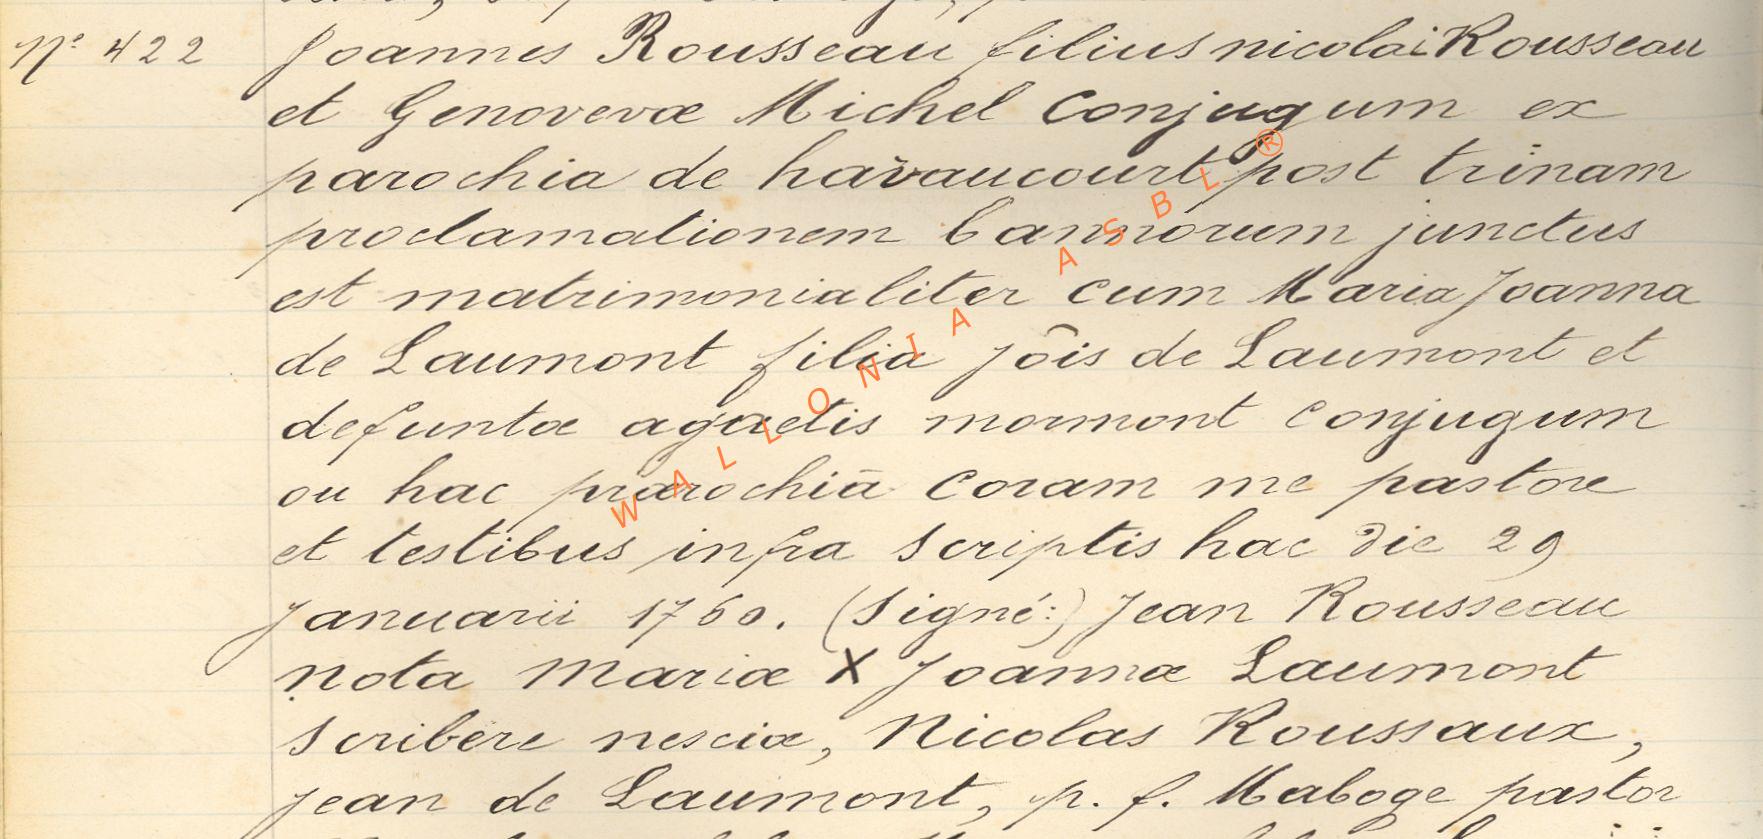 Nº 422 Joannes Rousseau filius nicolai Rousseau
et Genovevæ Michel Conjugum ex
parochia de havaucourt post trinam
proclamationem bannorum junctus
est matrimonialiter cum Maria Joanna
de Laumont filia Jôis de Laumont et
defuntæ agaetis mormont conjugum
ou hac parochiā coram me pastore
et testibus infra scriptis hac die 29
Januarii 1760. (Signé:) Jean Rousseau
nota Mariæ X Joannæ Laumont
scribere nesciæ, Nicolas Roussaux,
Jean de Laumont, p. f. Maboge pastor
WALLONIA ASBL ®